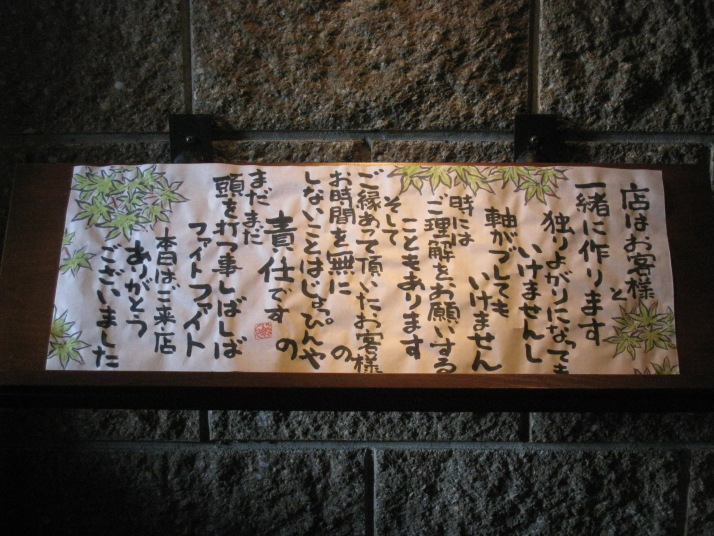 店はお客様と
一緒に作ります
独りよがりになっても
いけませんし
軸がブレても
いけません
時には
ご理解をお願いする
こともあります
そして
ご縁あって頂いたお客様の
お時間を無に
しないことはじょっぴんやの
責任です
まだまだ
頭を打つ事しばしば
ファイトファイト
本日はご来店
ありがとう
ございました